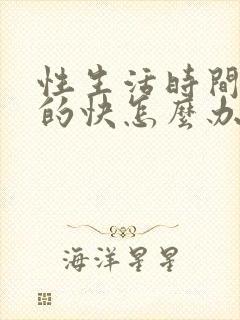 性生活時間
的快怎麼办
海洋星星